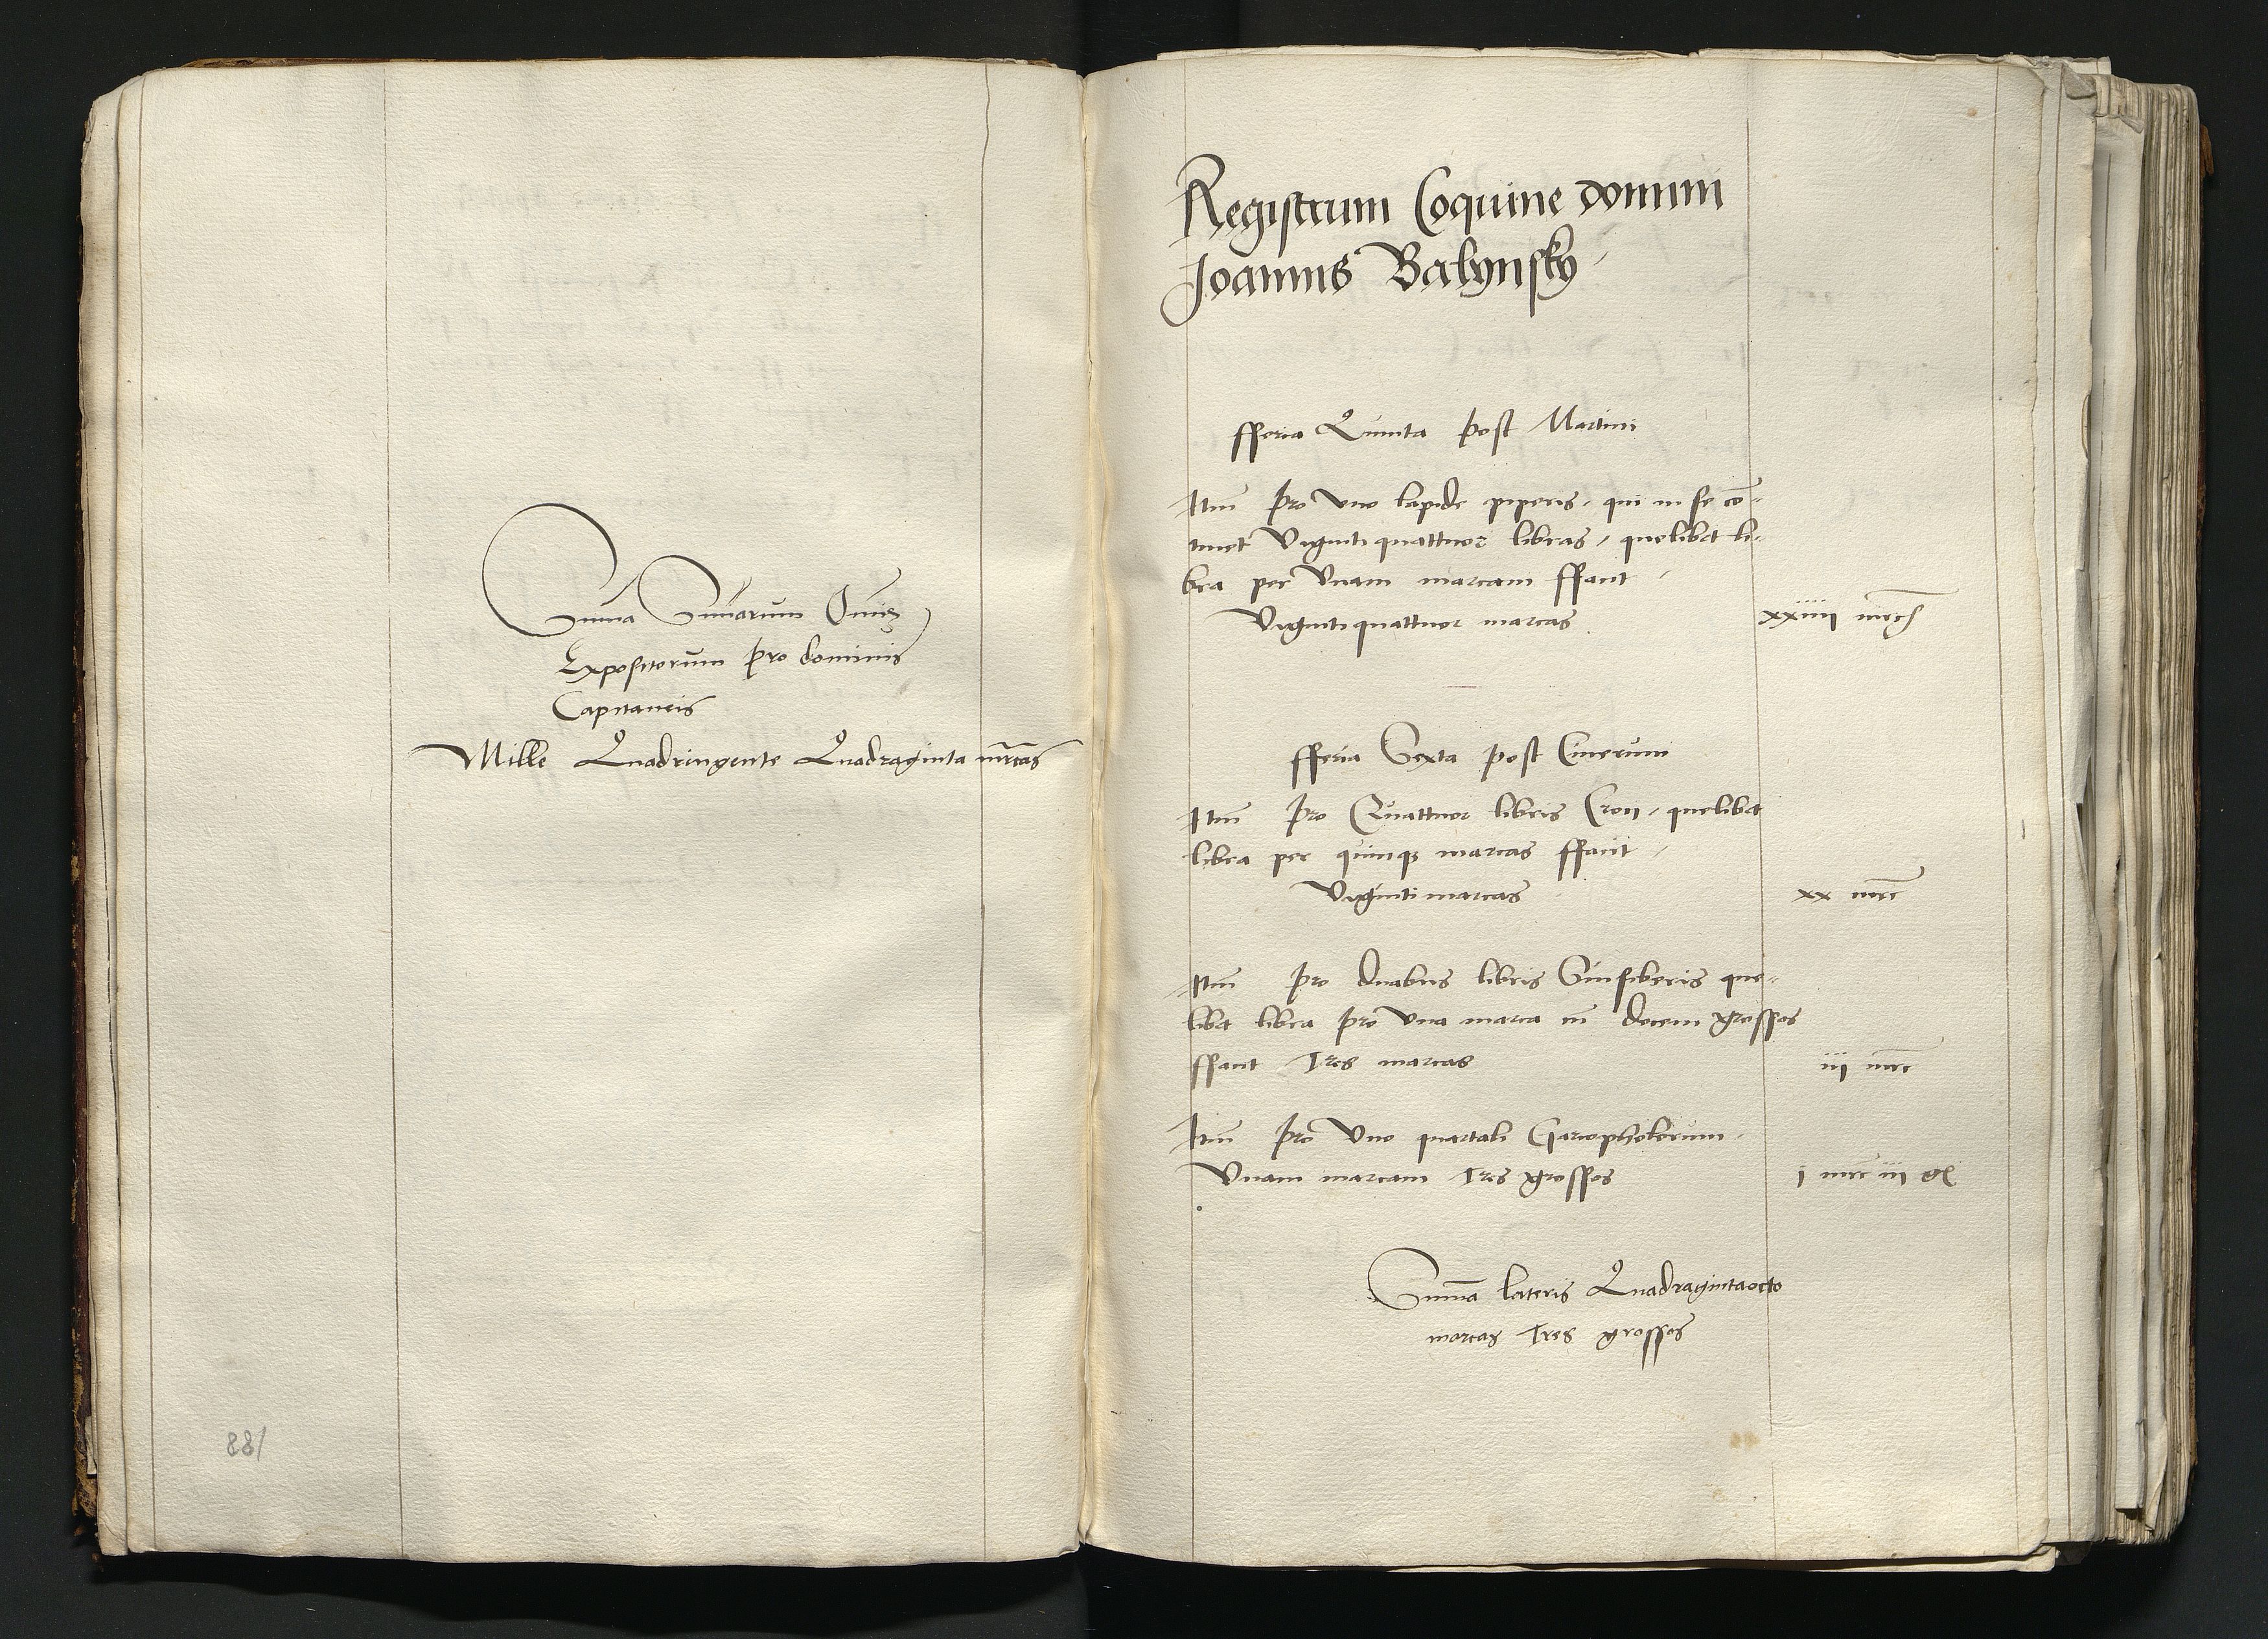 Suma Sumarum Omnes
Expositorum pro dominis
Capitaneis
Mille Quadringente Quadraginta mrcas
88/
Registrum Coquine domini
Joannis Balynsky
fferia Quinta post Martini
Itm pro uno lapide piperis, qui in se co-
tinet Viginti quattuor libras, quelibet li-
bra per Unam marcam ffant
Viginti quattuor marcas
xxiiii mrc
fferia Sexta post Cinerum
Itm pro Quattuor libris Croci, quelibet
libra per quinq marcas ffant
Viginti marcas
xx mrc
Itm pro duabus libris Sinsiberis que-
libet libra pro Una marca cu decem grossos
ffant Tres marcas
iii mrc
Itm pro Uno quartali Gariopholorum
Unam marcam Tres grossos
i mrc iii gr
Suma lateris Quadragintaocto
marcas Tres grossos